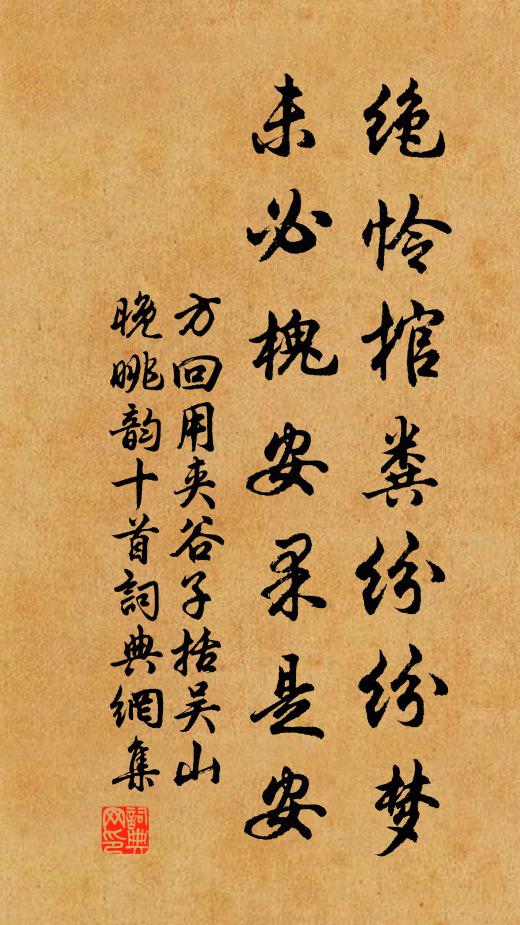 绝怜棺粪纷纷梦
未必槐安果是安
方回用夹谷子括吴山
晚眺韵十首詞典網集
詞典
网印